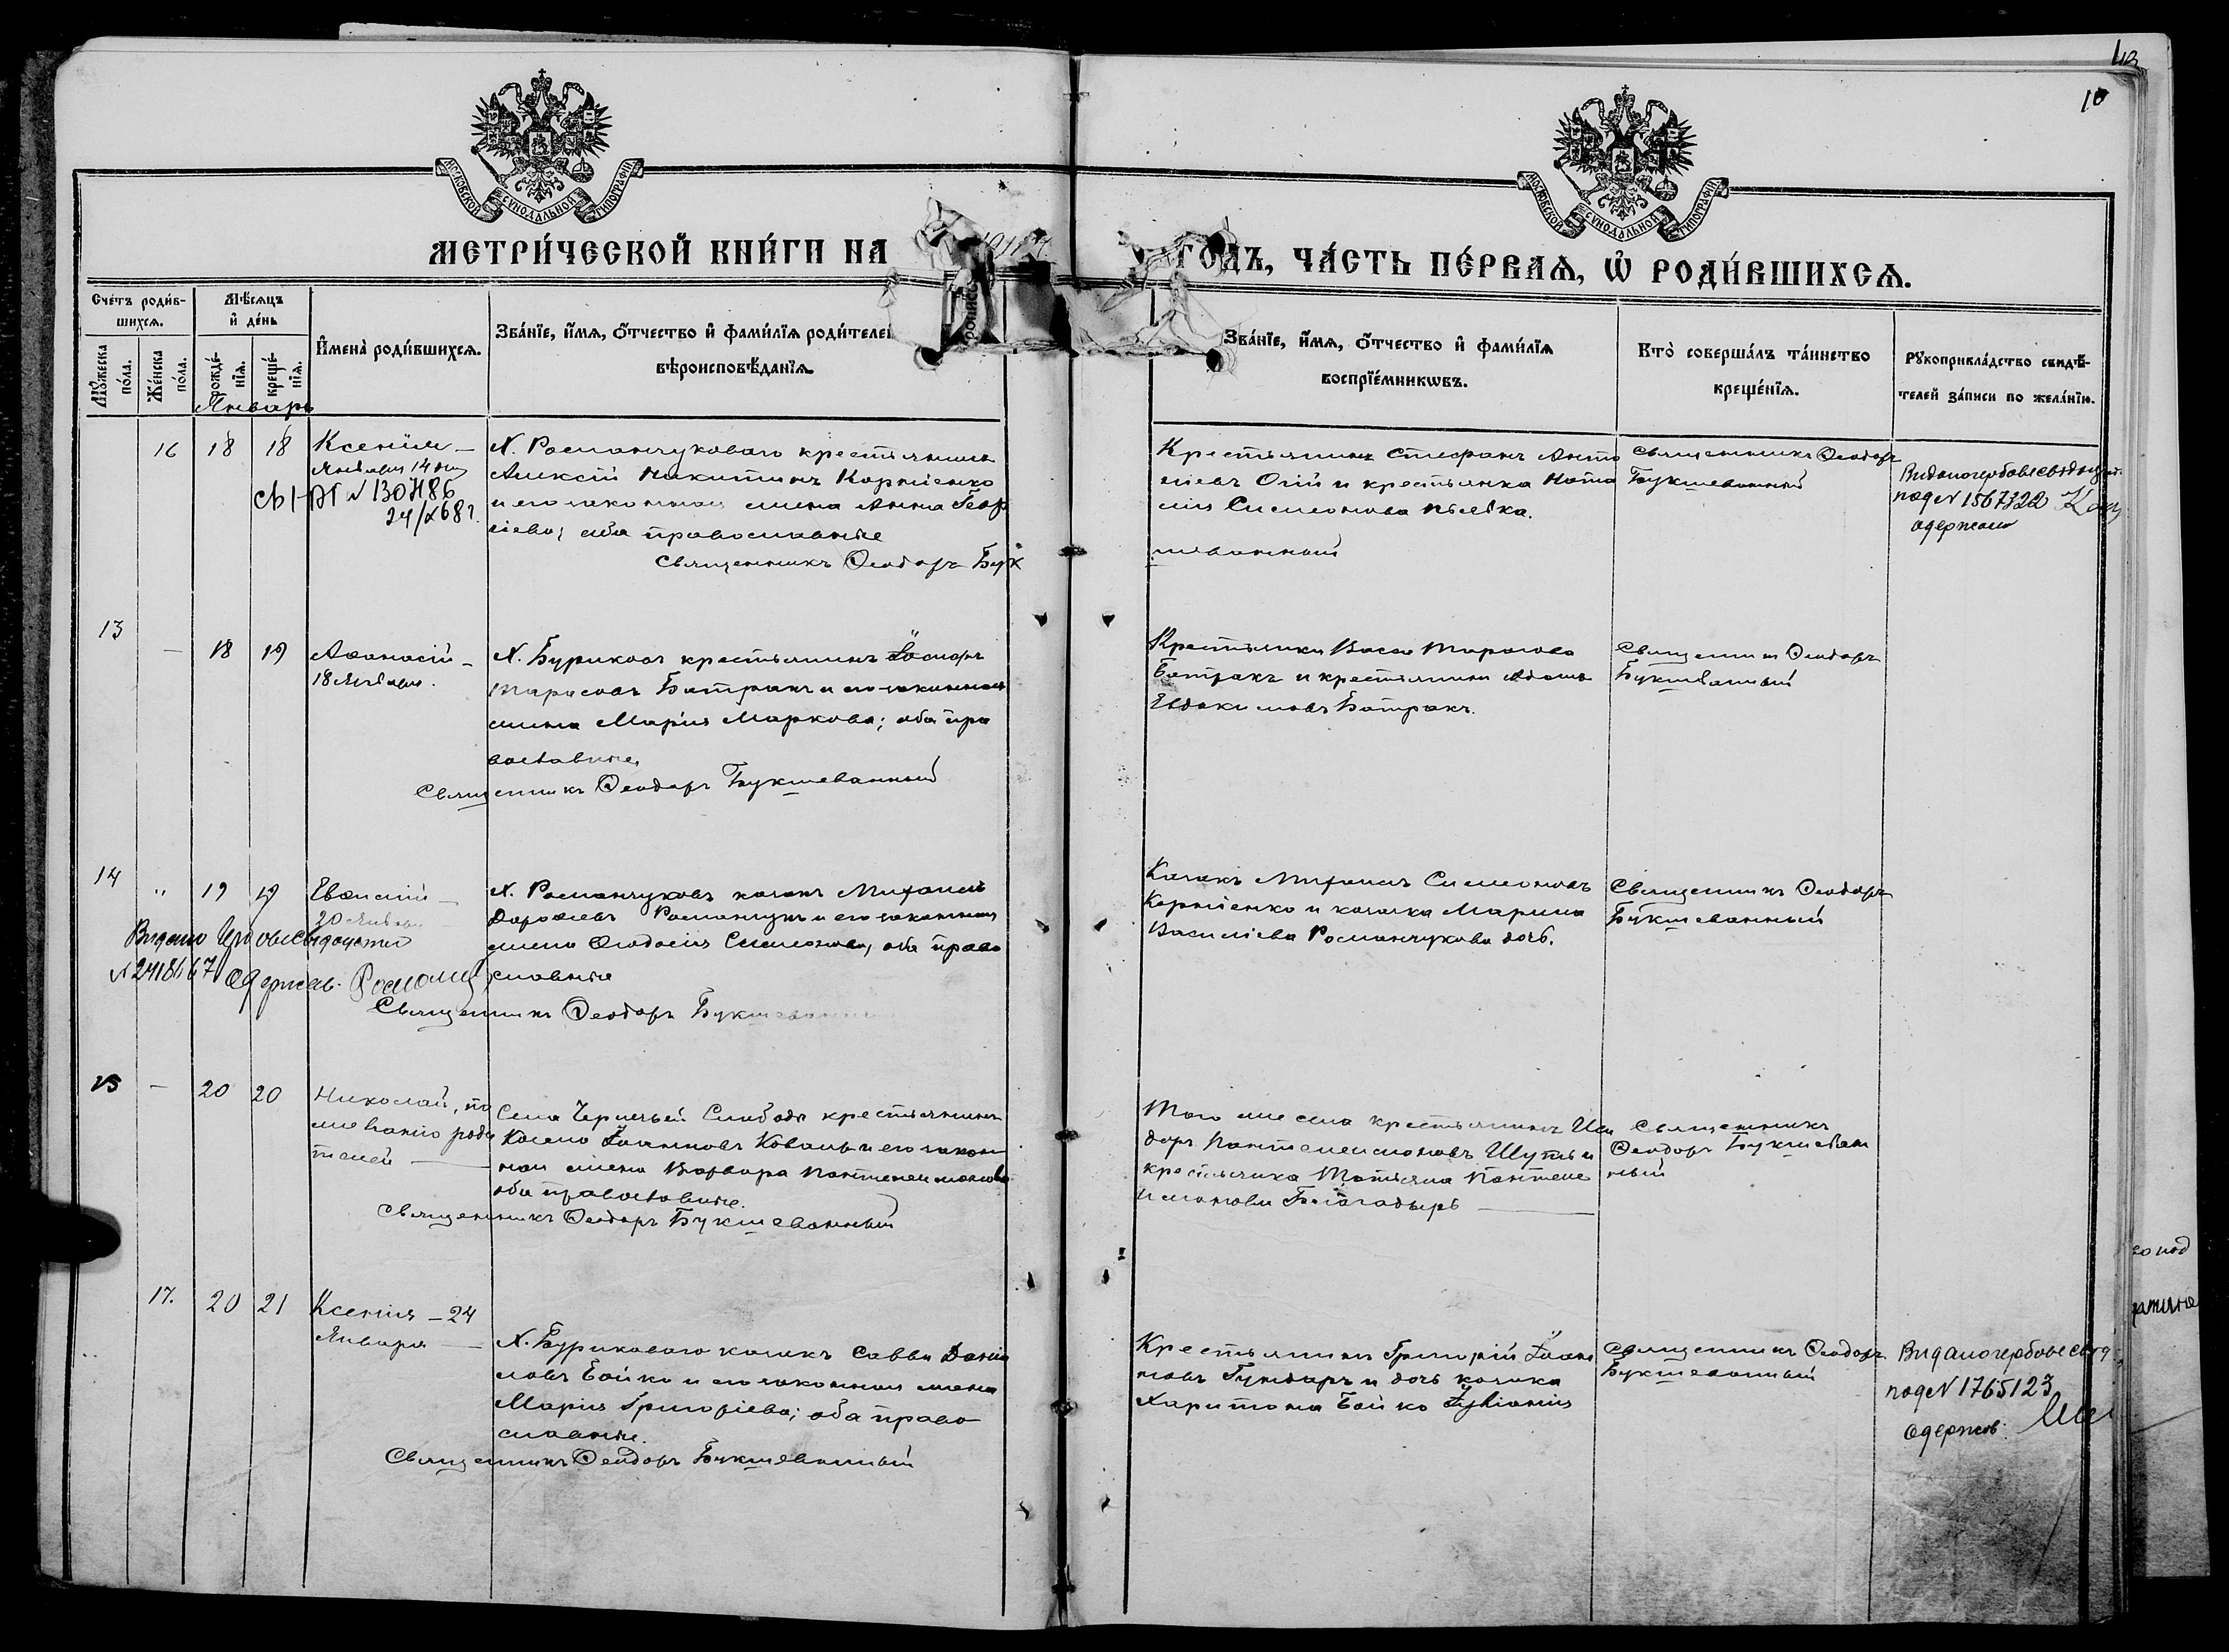 10
МОСКОВСКОЙ СУНОДАЛЬНОЙ ТИПОГРАФІИ
МОСКОВСКОЙ СУНОДАЛЬНОЙ ТИПОГРАФІИ
МЕТРИ́ЧЕСКОЙ КНИ́ГИ НА
ГО́ДЪ, ЧА́СТЬ ПЕ́РВАѦ, Ѽ РОДИ́ВШИХСѦ.
Сче́тъ роди́в-
шихсѧ.
Мѣ́сѧцъ
и҆ де́нь
И҆мена̀ роди́вшихсѧ.
Зва́нїе, и҆́мѧ, ѻ҆́тчество и҆ фами́лїѧ роди́телей
вѣроисповѣ́данїѧ.
Мꙋ́жеска по́ла.
Же́нска по́ла.
рожде́-нїѧ.
креще́-нїѧ.
Зва́нїе, и҆́мѧ, ѻ҆́тчество и҆ фами́лїѧ
воспрїе́мникѡвъ.
Кто̀ соверша́лъ та́инство
креще́нїѧ.
Рꙋкоприкла́дство свидѣ́-
телей за́писи по жела́нїю.
Январь
16 18 18 Ксенія —
Января 14 дня
№ 130486
24/X 68 г.
Х. Романчукового крестьянинъ
Алексій Никитинъ Корніенко
и его законная жена Анна Геор
гіева; оба православные
Священникъ Ѳеодоръ Бук
шеванный
Крестьянинъ Стефанъ Анто
ніевъ и крестьянка Ната
лія Симеонова
Священникъ Ѳеодоръ
Букшеванный
Видано гербове свідоцт.
под № 1567320
одержал
13 — 18 19 Аѳанасій —
18 Января.
Х. Буриковъ крестьянинъ Іосифъ
Тарасовъ Батракъ и его законная
жена Марія Маркова; оба пра
вославные.
Священникъ Ѳеодоръ Букшеванный
Крестьянка Васса Тарасова
Батракъ и крестьянинъ Адамъ
Евдокимовъ Батракъ.
Священникъ Ѳеодоръ
Букшеванный
14 " 19 19 Евѳимій —
20 Января
Видано свідоцтво
№ 2418467 Одержав.
Х. Романчуковъ казакъ Митрофанъ
Дороѳеевъ Романчукъ и его законная
жена Ѳеодосія Симеонова, оба право
славные
Священникъ Ѳеодоръ Букшеванный
Казакъ Симеоновъ
Корніенко и казачка Марина
Василіева Романчукова дочь.
Священникъ Ѳеодоръ
Букшеванный
15 — 20 20 Николай, по
желанію роди
телей
Села Чернечьей Слободы крестьянинъ
Косма Іоанновъ Коваль и его закон
ная жена Варвара Пантелеимонова
оба православные.
Священникъ Ѳеодоръ Букшеванный
Того же села крестьянинъ Иси
доръ Пантелеимоновъ и
крестьянка Татьяна Пантеле
имонова
Священникъ
Ѳеодоръ Букшеван
ный
17. 20 21 Ксенія — 24
Января —
Х. Бурикового казакъ Савва Дани
ловъ Бойко и его законная жена
Марія Григоріева; оба право
славные.
Священникъ Ѳеодоръ Букшеванный
Крестьянинъ Григорій Іоан
новъ и дочь казака
Харитона Бойко Іуліанія
Священникъ Ѳеодоръ
Букшеванный
Видано гербове свід
под № 1765123
одержав.